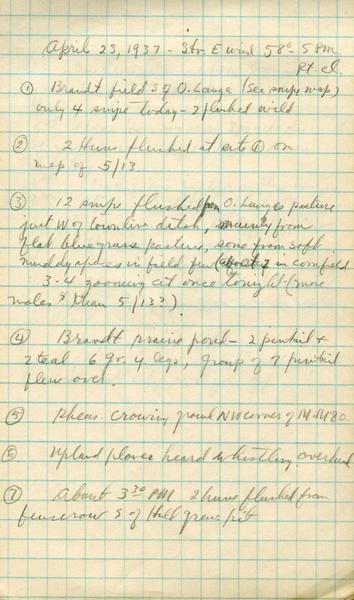 April 23, 1937 - Str. E wind 58° - 5 PM
Pt. Cl.
① Brandt field S of O. Lange (See snipe map)
only 4 snipe today - 2 flushed wild
② 2 Huns flushed at site ① on
map of 5/13
③ 12 snipe flushed from O. Langes pasture
just W of townline ditch, mainly from
flat bluegrass pasture, some from soft
muddy places in field few (about 7 in cornfield
3-4 zooming at once tonight (more
males than 5/13?)
④ Brandt prairie pond - 2 pintail +
2 teal 6 gr. y. legs, group of 7 pintail
flew over.
⑤ Pheas. crowing ground NW corner of M. M 80.
⑥ Upland plover heard whistling overhead
⑦ About 3 30 PM 2 huns flushed from
fencerow S of Hill gravel pit